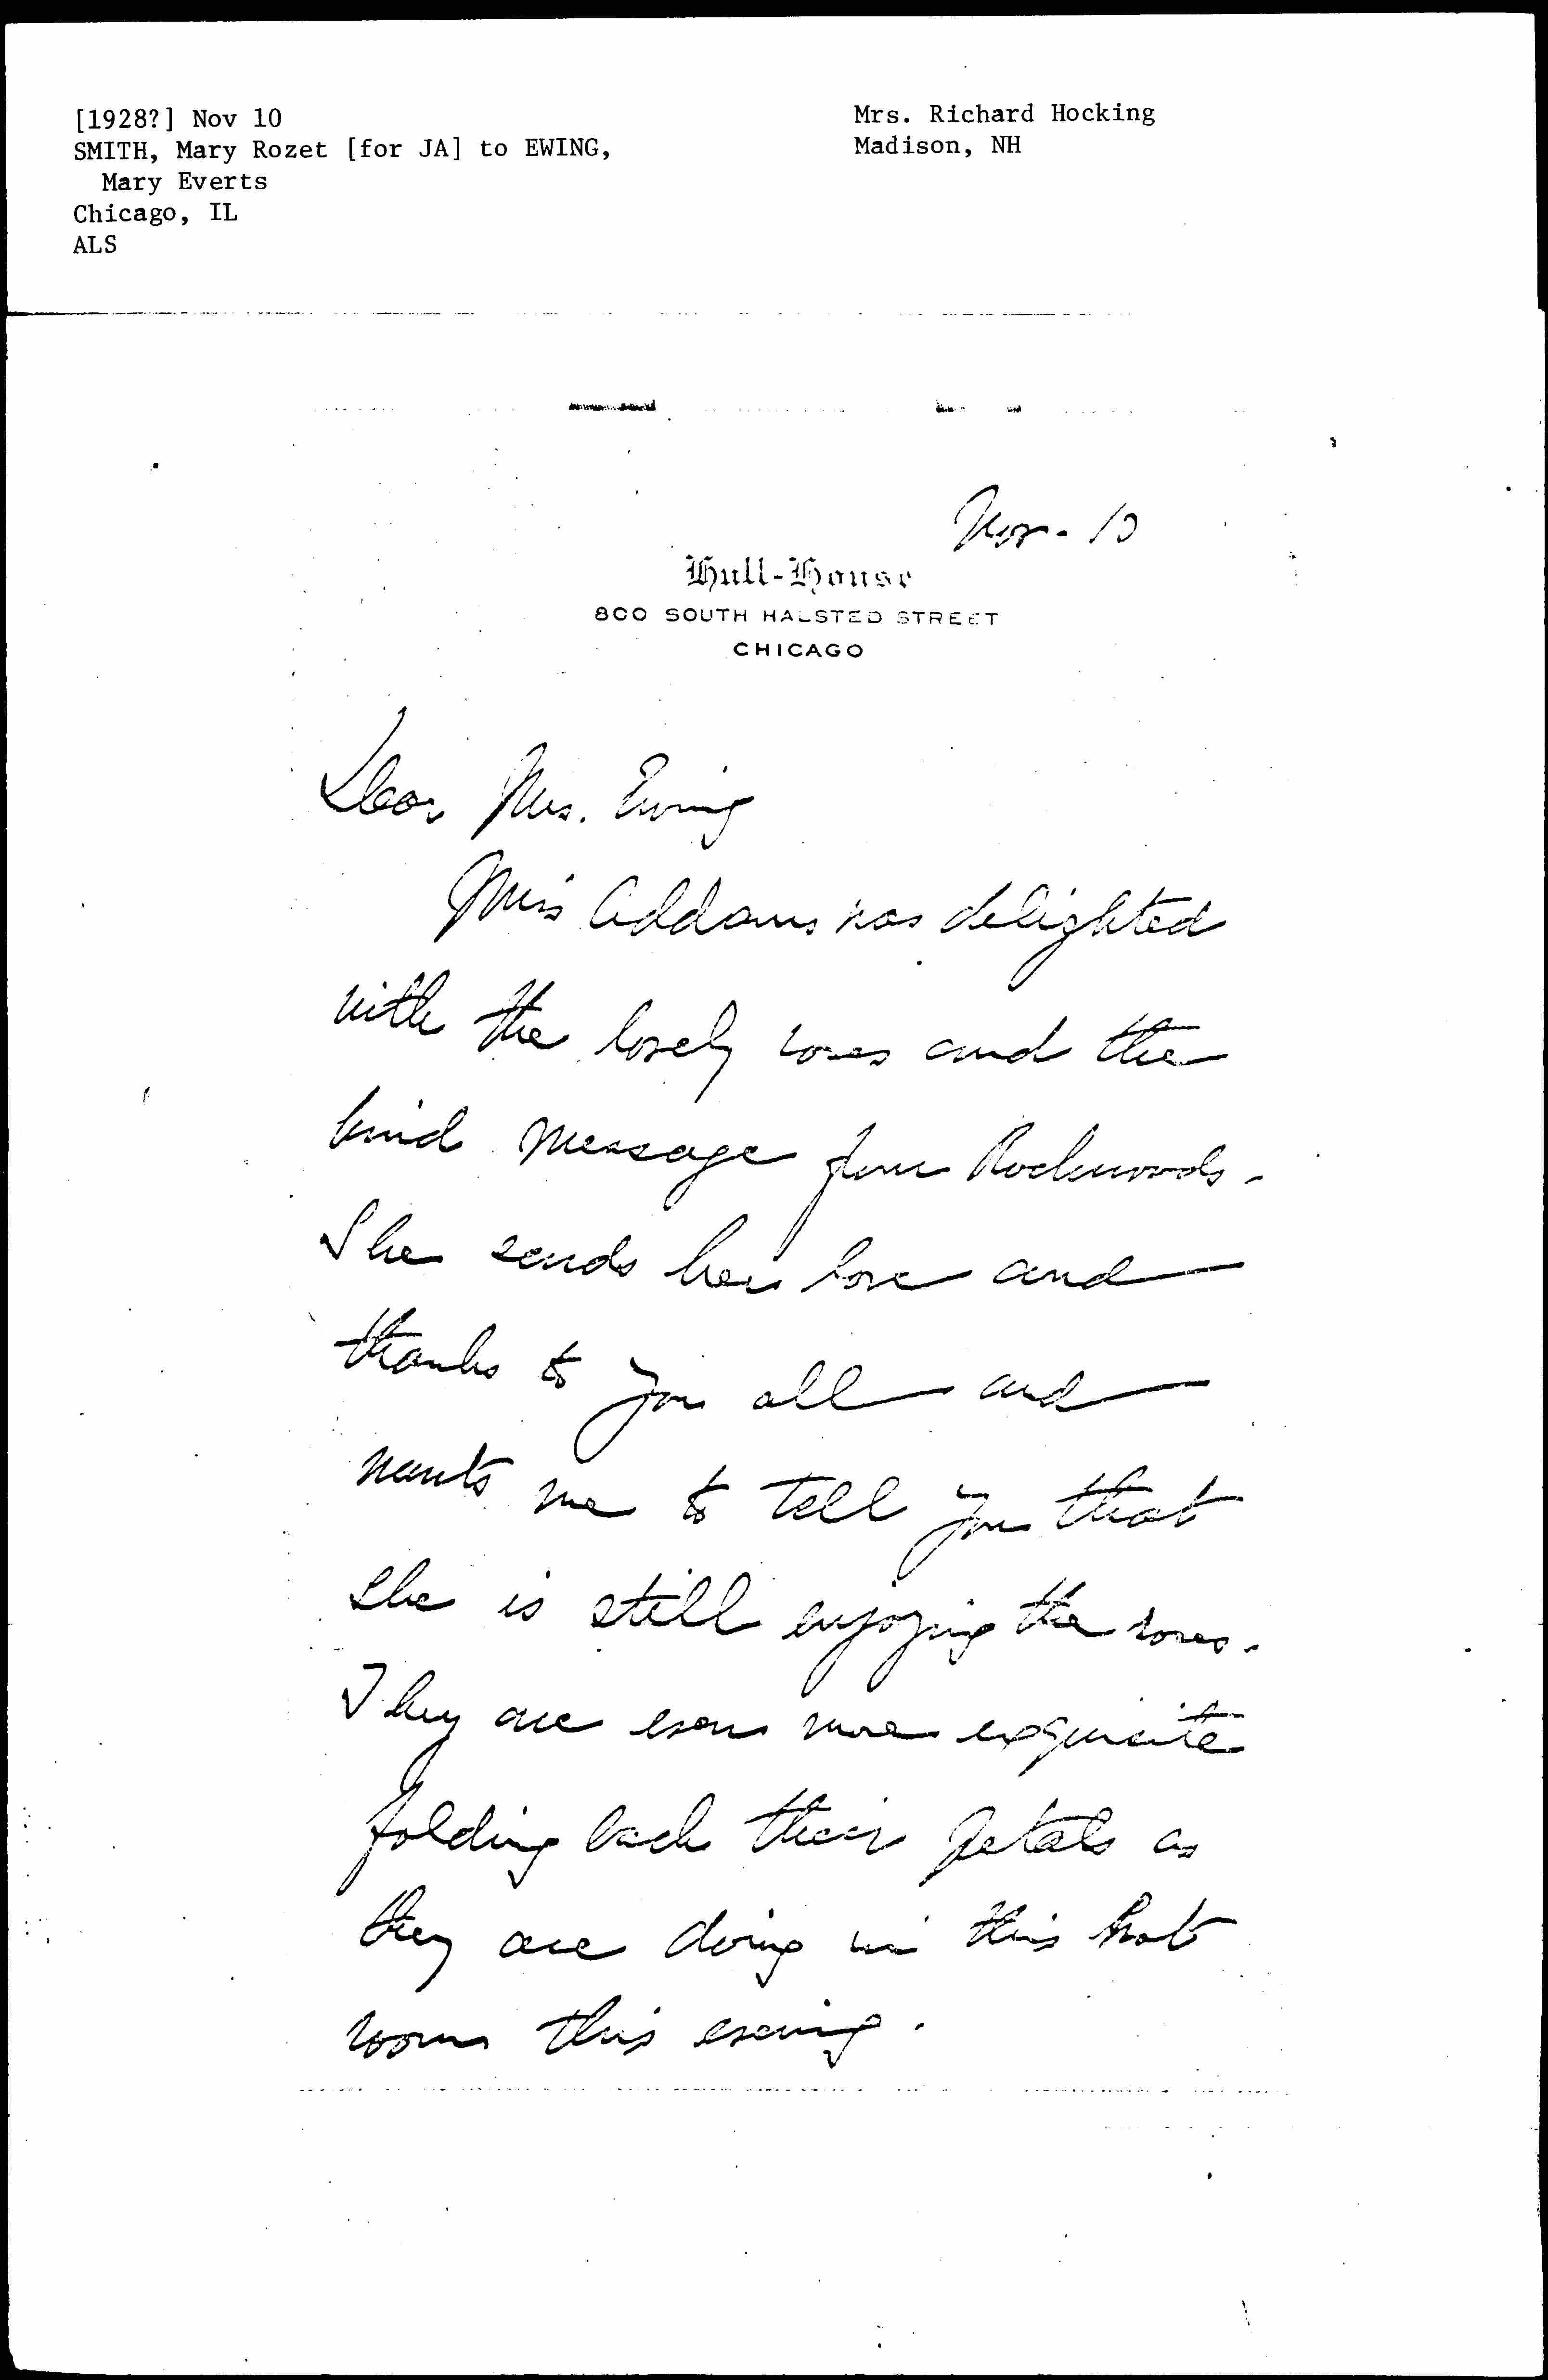 [1928?] Nov 10
SMITH, Mary Rozet [for JA] to EWING,
Mary Everts
Chicago, IL
ALS
Mrs. Richard Hocking
Madison, NH
Nov. 10
Hull-House
800 SOUTH HALSTED STREET
CHICAGO
Dear Mrs. Ewing
Miss Addams was delighted
with the lovely roses and the
kind message from Rockwoods.
She sends her love and
thanks to you all and
wants me to tell you that
she is still enjoying the roses.
They are even more exquisite
folding back their petals as
they are doing in this hot
room this evening.